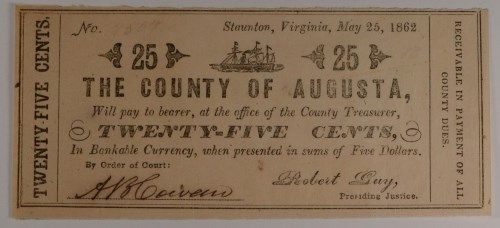 TWENTY-FIVE CENTS.
No.
Staunton, Virginia, May 25, 1862
25 25
THE COUNTY OF AUGUSTA,
Will pay to bearer, at the office of the County Treasurer,
TWENTY-FIVE CENTS,
In Bankable Currency, when presented in sums of Five Dollars.
By Order of Court:
Robert Guy,
Presiding Justice.
RECEIVABLE IN PAYMENT OF ALL
COUNTY DUES.